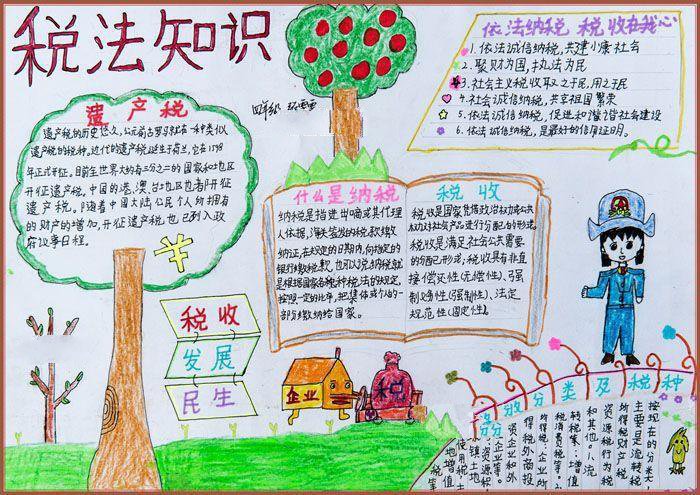 税法知识
依法纳税 税收在我心
1. 依法诚信纳税,共建小康社会
2. 聚财为国,执法为民
3. 社会主义税收取之于民,用之于民
4. 社会诚信纳税,共享祖国繁荣
5. 依法诚信纳税,促进和谐社会建设
6. 依法诚信纳税,是最好的信用证明。
遗产税
遗产税的历史悠久,公元前古罗马就有一种类似
遗产税的税种。近代的遗产税诞生于荷兰,它在1598
年正式开征。目前世界大约有三分之二的国家和地区
开征遗产税。中国的港、澳、台地区也都开征
遗产税。随着中国大陆公民个人的拥有
的财产的增加,开征遗产税也已列入政
府议事日程。
什么是纳税
纳税是指进出口商或其代理
人依据,海关签发的税款缴
纳证,在规定的日期内,向指定的
银行缴税款,也可以说纳税就
是根据国家各种税法的规定,
按照一定的比率,把集体或个人的一
部分缴纳给国家。
税收
税收是国家凭借政治权力或公共
权力对社会产品进行分配的形式。
税收是满足社会公共需要
的分配形式;税收具有非直
接偿还性(无偿性)、强
制义务性(强制性)、法定
规范性(固定性)。
税收
发展
民生
企业
税
税收分类及税种
按现在的分类,
主要是流转税
所得税财产税
资源税行为税
和其他。1.流
转税:增值
税消费税等。
所得税:企业所
得税外商投
资企业和外
企业等。